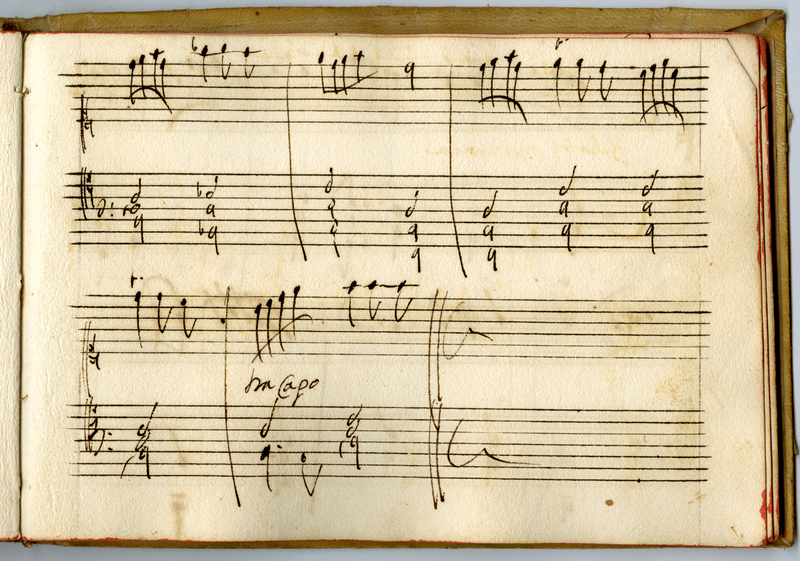 Da Capo